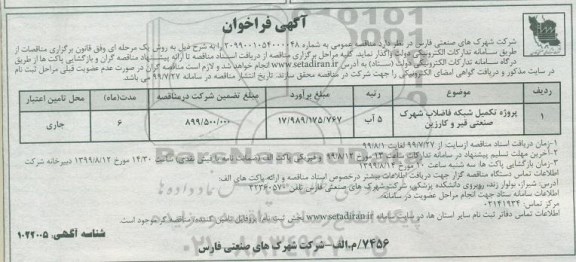 آگهی فراخوان
شرکت شهرک های صنعتی فارس در نظر دارد مناقصه عمومی به شماره ۲۰۹۹۰۰۱۰۵۴۰۰۰۰۴۸ را به شرح ذیل به روش یک مرحله ای وفق قانون برگزاری مناقصات از
طریق سامانه تدارکات الکترونیکی دولت واگذار نماید. کلیه مراحل برگزاری مناقصه از دریافت اسناد مناقصه تا ارائه پیشنهاد مناقصه گران و بازگشایی پاکت ها از طریق
درگاه سامانه تدارکات الکترونیکی دولت (ستاد) به آدرس www.setadiran.ir انجام خواهد شد و لازم است مناقصه گران در صورت عدم عضویت قبلی مراحل ثبت نام
در سایت مذکور و دریافت گواهی امضای الکترونیکی را جهت شرکت در مناقصه محقق سازند. تاریخ انتشار مناقصه در سامانه ۹۹/۷/۲۷ می باشد.
ردیف موضوع رتبه مبلغ برآورد مبلغ تضمین شرکت در مناقصه مدت(ماه) محل تامین اعتبار
۱ پروژه تکمیل شبکه فاضلاب شهرک صنعتی قیر و کارزین ۵ آب ۱۷/۹۸۹/۱۷۵/۷۶۷ ۸۹۹/۵۰۰/۰۰۰ ۶ جاری
۱-زمان دریافت اسناد مناقصه از سایت: از ۹۹/۷/۲۷ لغایت ۹۹/۸/۱
۲-آخرین مهلت تسلیم پیشنهاد در سامانه تدارکات ساعت ۱۴ مورخ ۹۹/۸/۱۲ و فیزیکی پاکت الف (ضمانت نامه یا فیش نقدی) ساعت ۱۴/۳۰ مورخ ۱۳۹۹/۸/۱۲ دبیرخانه شرکت
۳-زمان بازگشایی پاکت ها: سه شنبه ساعت ۱۰ مورخ ۱۳۹۹/۸/۱۳
اطلاعات تماس دستگاه مناقصه گزار جهت دریافت اطلاعات بیشتر درخصوص اسناد مناقصه و ارائه پاکت های الف:
آدرس: شیراز، بولوار زند، روبروی دانشکده پزشکی، شرکت شهرک های صنعتی فارس تلفن: ۳۲۳۶۰۵۷۰
اطلاعات تماس سامانه ستاد جهت انجام مراحل عضویت در سامانه:
مرکز تماس: ۰۲۱۴۱۹۳۴
اطلاعات تماس دفاتر ثبت نام سایر استان ها، در سایت سامانه www.setadiran.ir بخش ثبت نام / پروفایل تامین کننده / مناقصه گر موجود است
شناسه آگهی: ۱۰۲۲۰۰۵
۷۴۵۶/م.الف-شرکت شهرک های صنعتی فارس